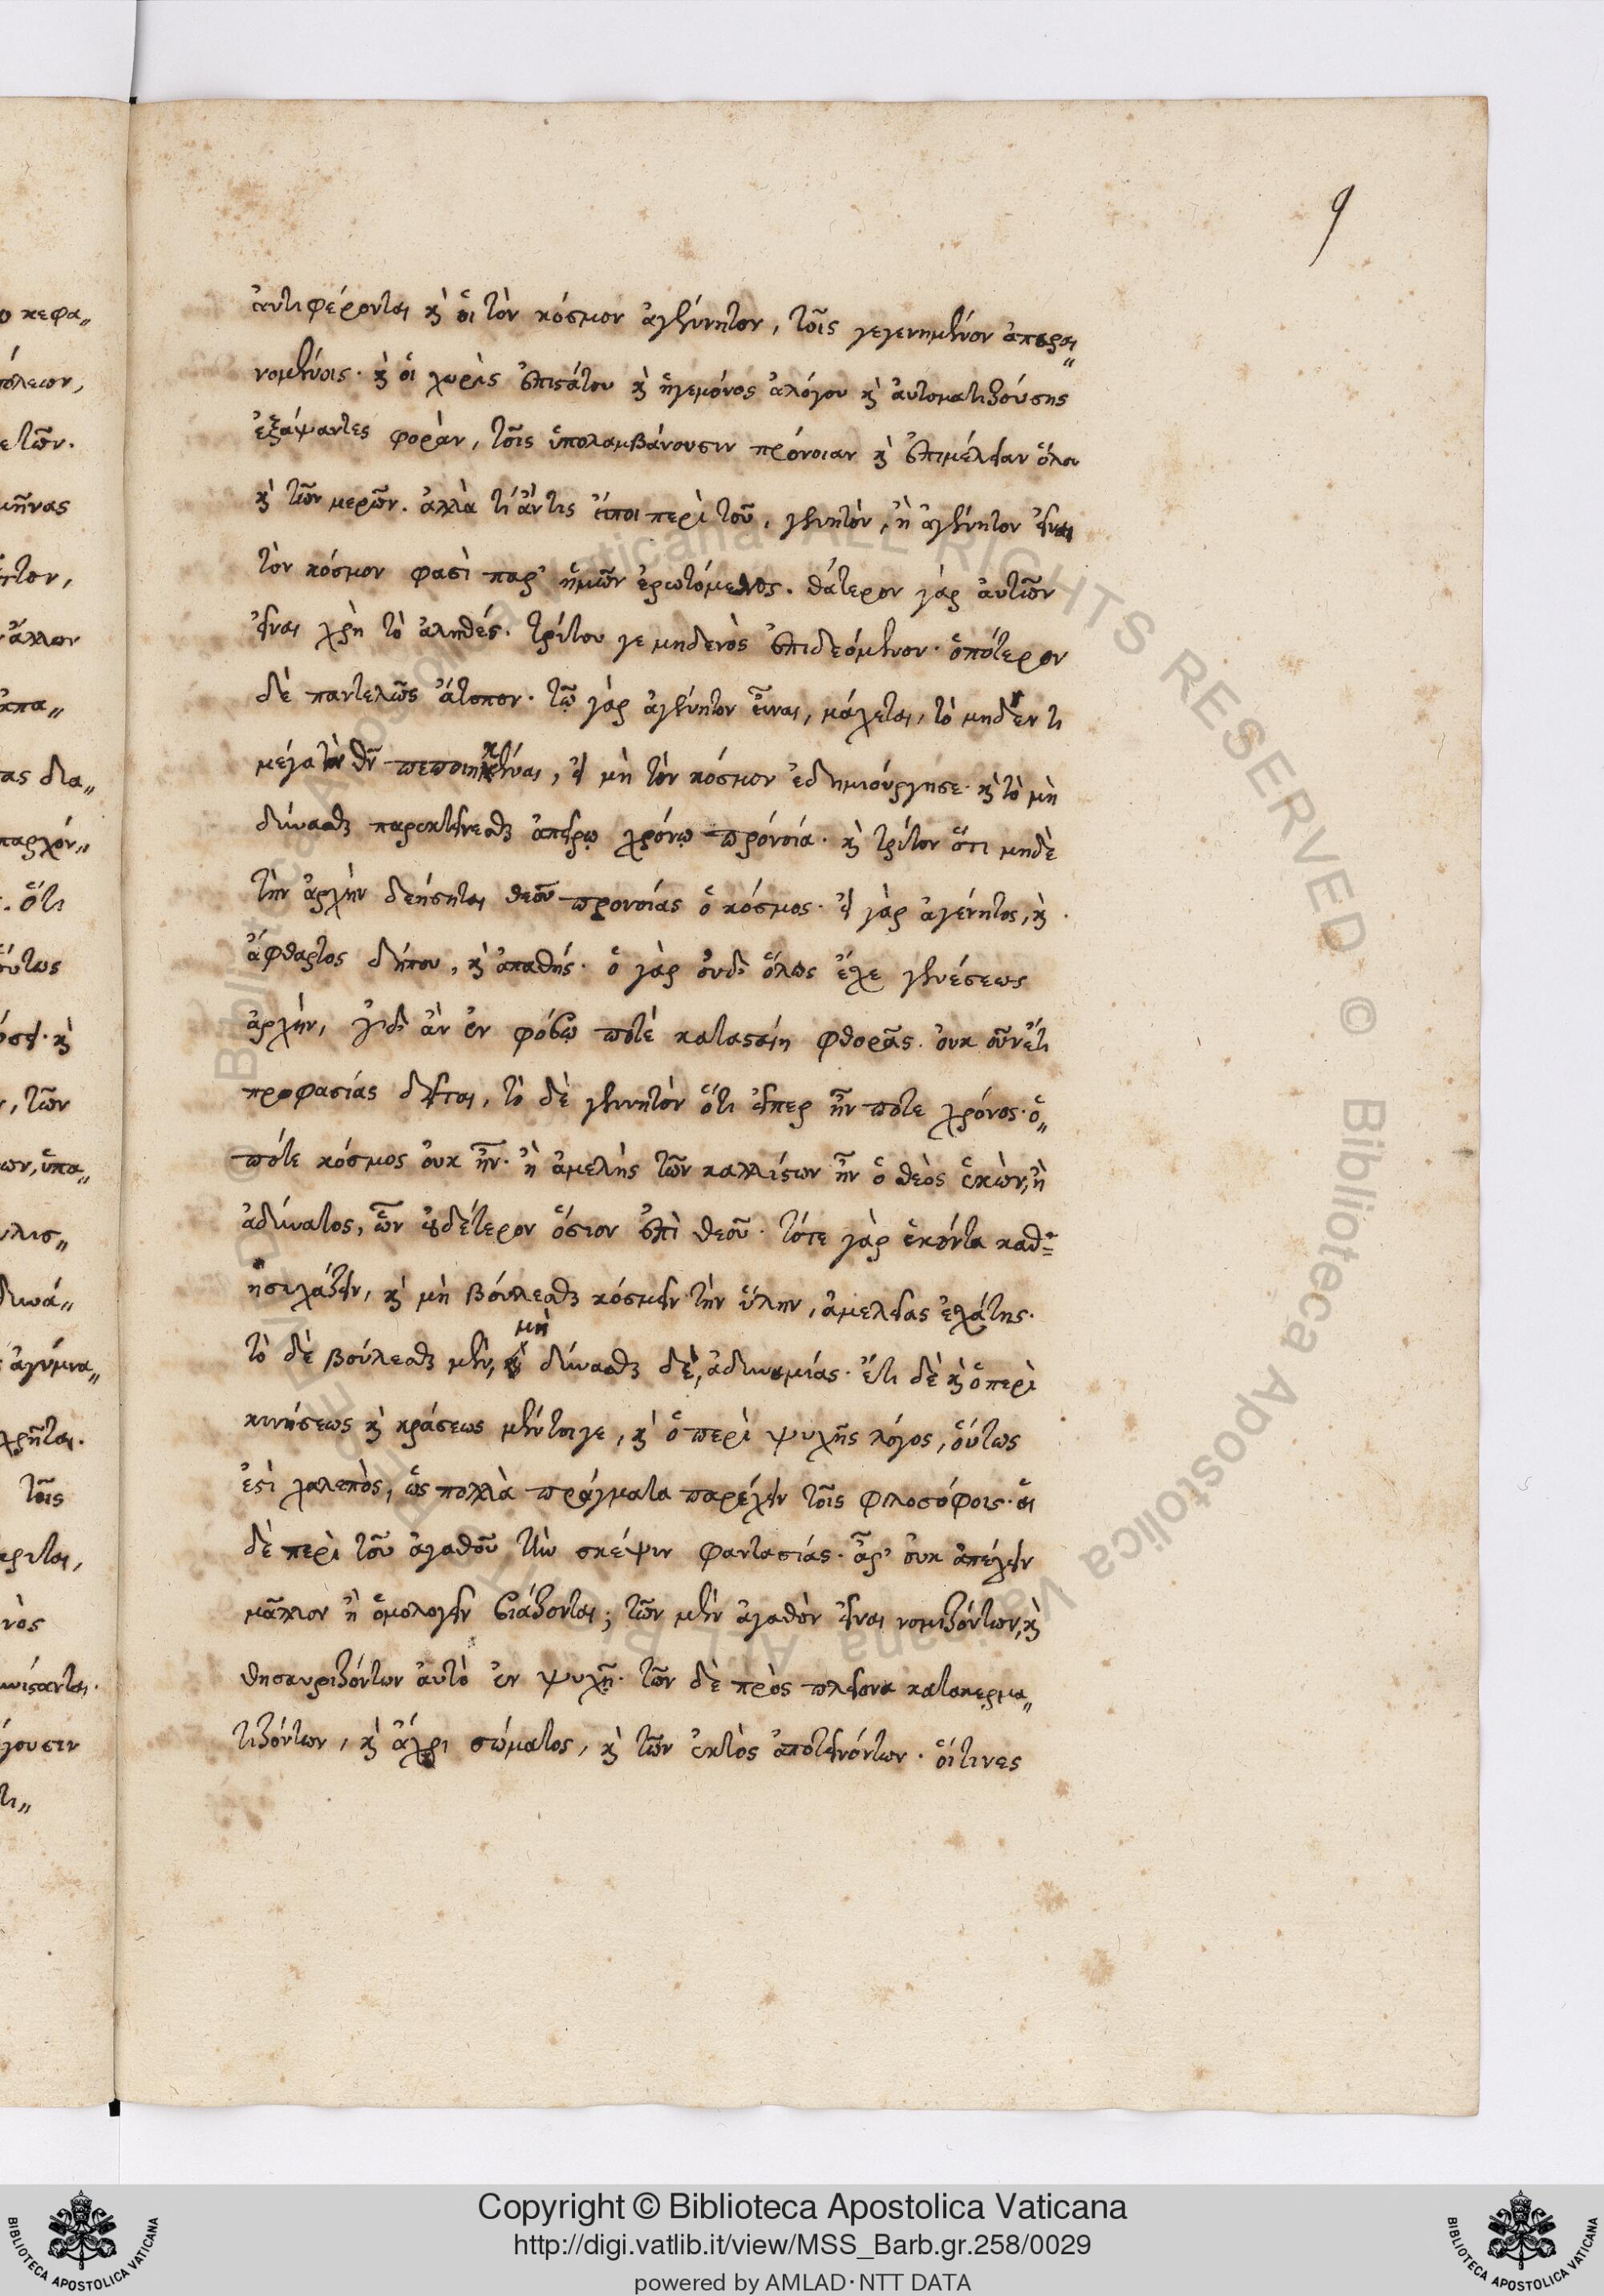 9
ἀντιφέρονται καὶ οἱ τὸν κόσμον ἀγέννητον, τοῖς γεγενημένον ἀποφαι„
νομένοις· καὶ οἱ χωρὶς ἐπιστάτου καὶ ἡγεμόνος ἀλόγου καὶ αὐτοματιζούσης
ἐξάψαντες φορὰν, τοῖς ὑπολαμβάνουσιν πρόνοιαν καὶ ἐπιμέλειαν ὅλου
καὶ τῶν μερῶν. ἀλλὰ τί ἄν τις εἴποι περὶ τοῦ, γεννητὸν, ἢ ἀγέννητον εἶναι
τὸν κόσμον φασὶ παρ' ἡμῶν ἐρωτόμενος. θάτερον γὰρ αὐτῶν
εἶναι χρὴ τὸ ἀληθές. τρίτου γε μηδενὸς ἐπιδεόμενον· ὁπότερον
δὲ παντελῶς ἄτοπον· τῷ γὰρ ἀγέννητον εἶναι, μάχεται, τὸ μηδέν τι
μέγα τὸν θν πεποιηκέναι, εἰ μὴ τὸν κόσμον ἐδημιούργησε· καὶ τὸ μὴ
δύνασθαι παρεκτείνεσθαι ἀπείρῳ χρόνῳ πρόνοια· καὶ τρίτον ὅτι μηδὲ
τὴν ἀρχὴν δεήσηται θεοῦ προνοίας ὁ κόσμος· εἰ γὰρ ἀγένητος, καὶ
ἄφθαρτος δήπου, καὶ ἀπαθής· ὁ γὰρ οὐδ' ὅλως ἔχε γενέσεως
ἀρχὴν, οὐδ' ἂν ἐν φόβῳ ποτέ κατασταίη φθορᾶς. οὐκ οὖν ἔτι
προφασίας δεῖται, τὸ δὲ γεννητόν ὅτι εἴπερ ἦν ποτε χρόνος· ὁ„
πότε κόσμος οὐκ ἦν· ἢ ἀμελὴς τῶν καλλίστων ἦν ὁ θεὸς ἑκών, ἢ
ἀδύνατος, ὧν οὐδέτερον ὅσιον ἐπὶ θεοῦ· τότε γὰρ ἑκόντα καθ„
ησυχάζειν, καὶ μὴ βούλεσθαι κόσμειν τὴν ὕλην, ἀμελείας ἐσχάτης.
μὴ
τὸ δὲ βούλεσθαι μὲν, δύνασθαι δὲ, ἀδυναμίας· ἔτι δὲ καὶ ὁ περὶ
κινήσεως καὶ κράσεως μέντοιγε, καὶ ὁ περὶ ψυχῆς λόγος, οὕτως
ἐστὶ χαλεπὸς, ὡς πολλὰ πράγματα παρέχειν τοῖς φιλοσόφοις· αἱ
δὲ περὶ τοῦ ἀγαθοῦ τὴν σκέψιν φαντασίας. ἆρ' οὐκ ἀπέχειν
μᾶλλον ἢ ὁμολογεῖν βιάζονται; τῶν μὲν ἀγαθὸν εἶναι νομιζόντων, καὶ
θησαυριζόντων αὐτὸ ἐν ψυχῇ· τῶν δὲ πρὸς πλείονα κατακερμα„
τιζόντων, καὶ ἄχρι σώματος, καὶ τῶν ἐκτὸς ἀποτεινόντων· οἵτινες
Copyright © Biblioteca Apostolica Vaticana
http://digi.vatlib.it/view/MSS_Barb.gr.258/0029
powered by AMLAD·NTT DATA